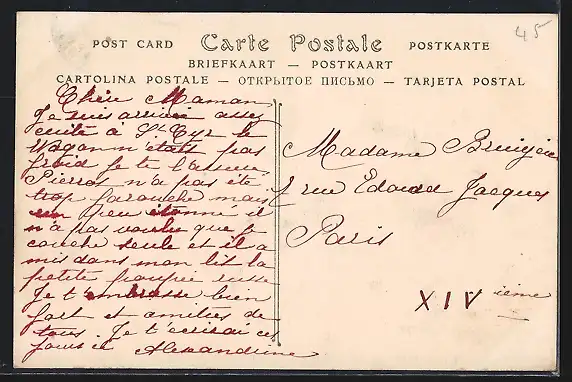 45
POST CARD Carte Postale POSTKARTE
BRIEFKAART — POSTKAART
CARTOLINA POSTALE — ОТКРЫТОЕ ПИСЬМО — TARJETA POSTAL
Chère Maman
Je suis arrivée assez
à St Cyr le
wagon n'était pas
froid je te l'assure.
Pierrot n'a pas été
trop farouche mais
un peu étonné il
n'a pas voulu que je
couche seule et il a
mis dans mon lit la
petite poupée russe
Je t'embrasse bien
fort et amitiés de
tous. Je t'écrirai ces
jours ci Alexandrine
Madame
2 rue Edouard Jacques
Paris
XIV ième